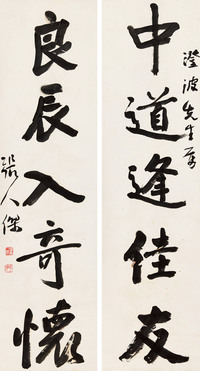 中道逢佳友
澄波先生屬
良辰入奇懷
張人傑